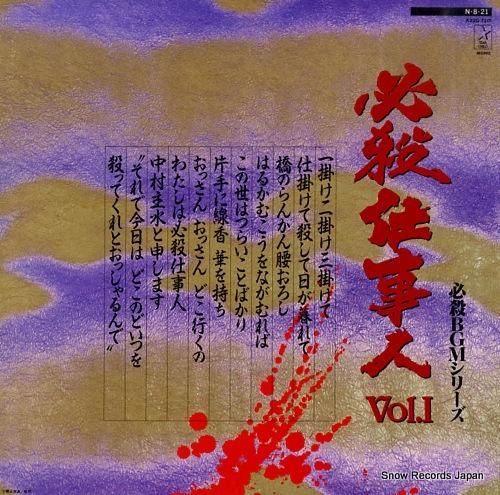 N·8·21
MONO
必殺仕事人
Vol.I
必殺BGMシリーズ
一掛け二掛け三掛けて
仕掛けて殺して日が暮れて
橋のらんかん腰おろし
はるかむこうをながむれば
この世はつらいことばかり
片手に線香 華を持ち
おっさん おっさん どこ行くの
わたしは必殺仕事人
中村主水と申します
“それで今日は どこのどいつを
殺ってくれとおっしゃるんで”
Snow Records Japan